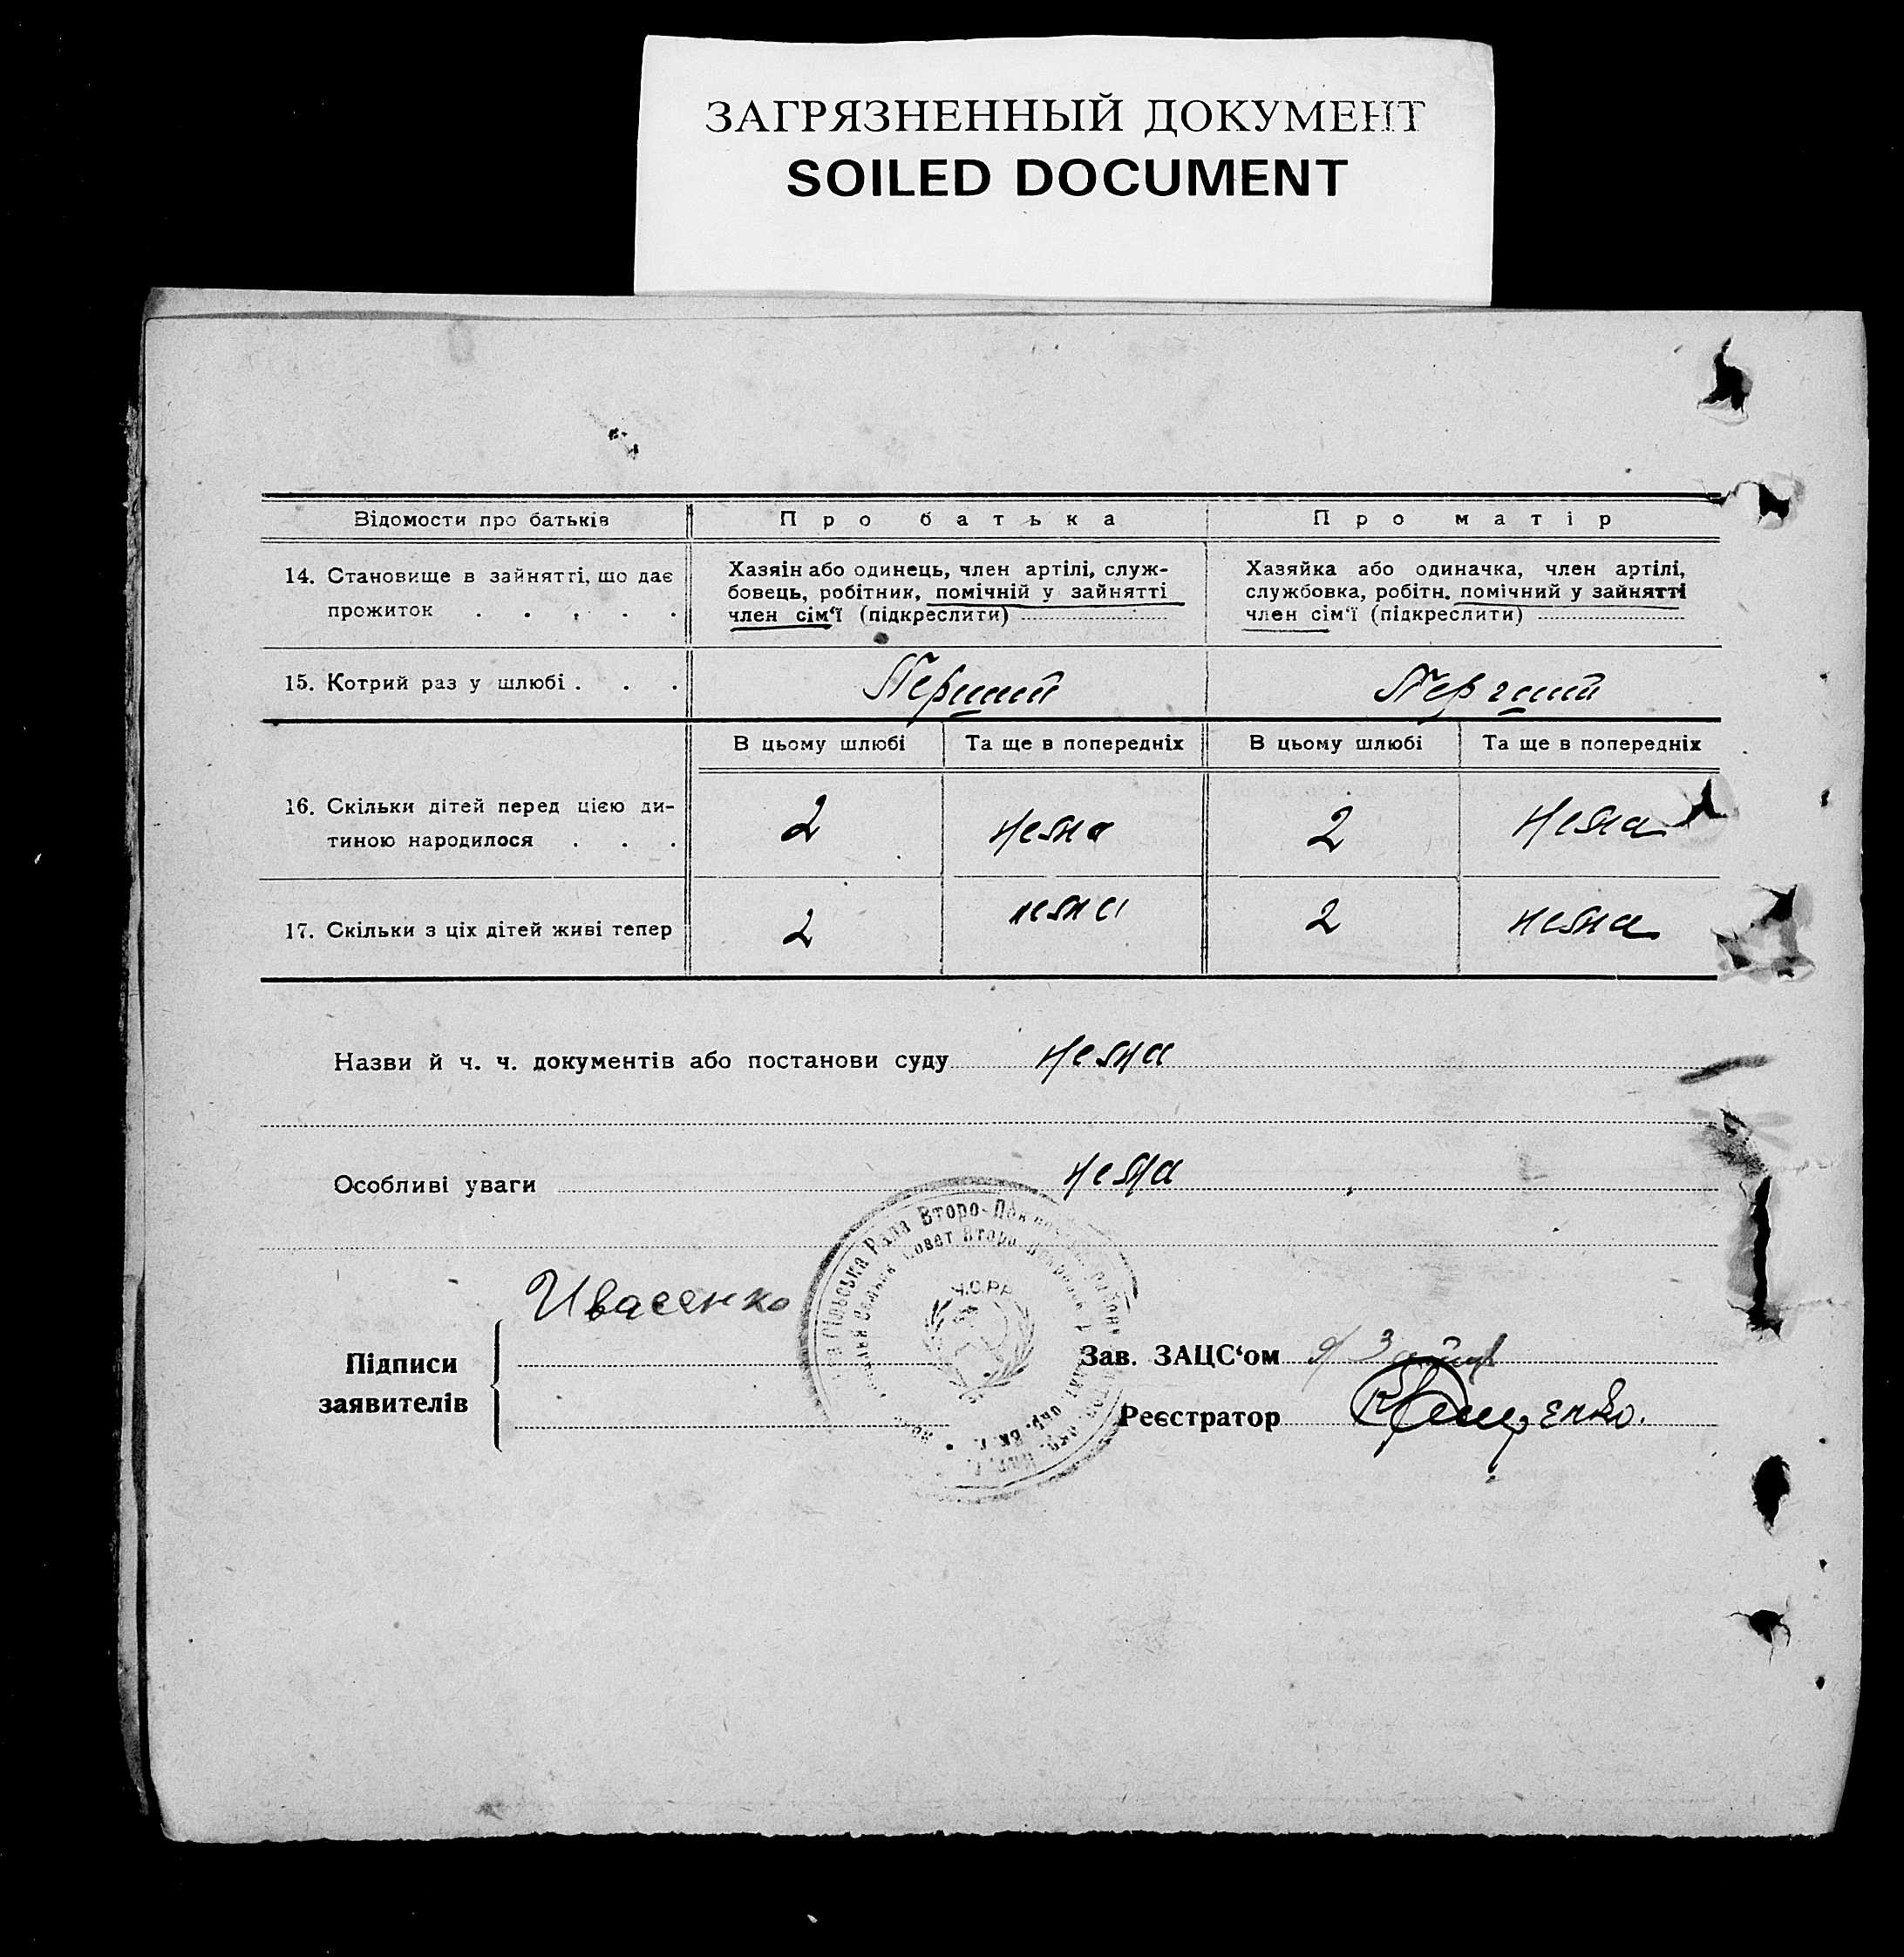 ЗАГРЯЗНЕННЫЙ ДОКУМЕНТ
SOILED DOCUMENT
Відомости про батьків
Про батька
Про матір
14. Становище в зайнятті, що дає
прожиток . . . . .
Хазяін або одинець, член артілі, служ-
бовець, робітник, помічній у зайнятті
член сім'ї (підкреслити)
Хазяйка або одиначка, член артілі,
службовка, робітн. помічний у зайнятті
член сім'ї (підкреслити)
15. Котрий раз у шлюбі . . .
Перший
Перший
В цьому шлюбі
Та ще в попередніх
В цьому шлюбі
Та ще в попередніх
16. Скільки дітей перед цією ди-
тиною народилося . . .
2
нема
2
нема
17. Скільки з ціх дітей живі тепер
2
нема
2
нема
Назви й ч. ч. документів або постанови суду нема
Особливі уваги нема
Сільська Рада Второ-
Второ-
У.С.Р.Р.
Ивасенко
Підписи
заявителів
Зав. ЗАЦС'ом
Реєстратор